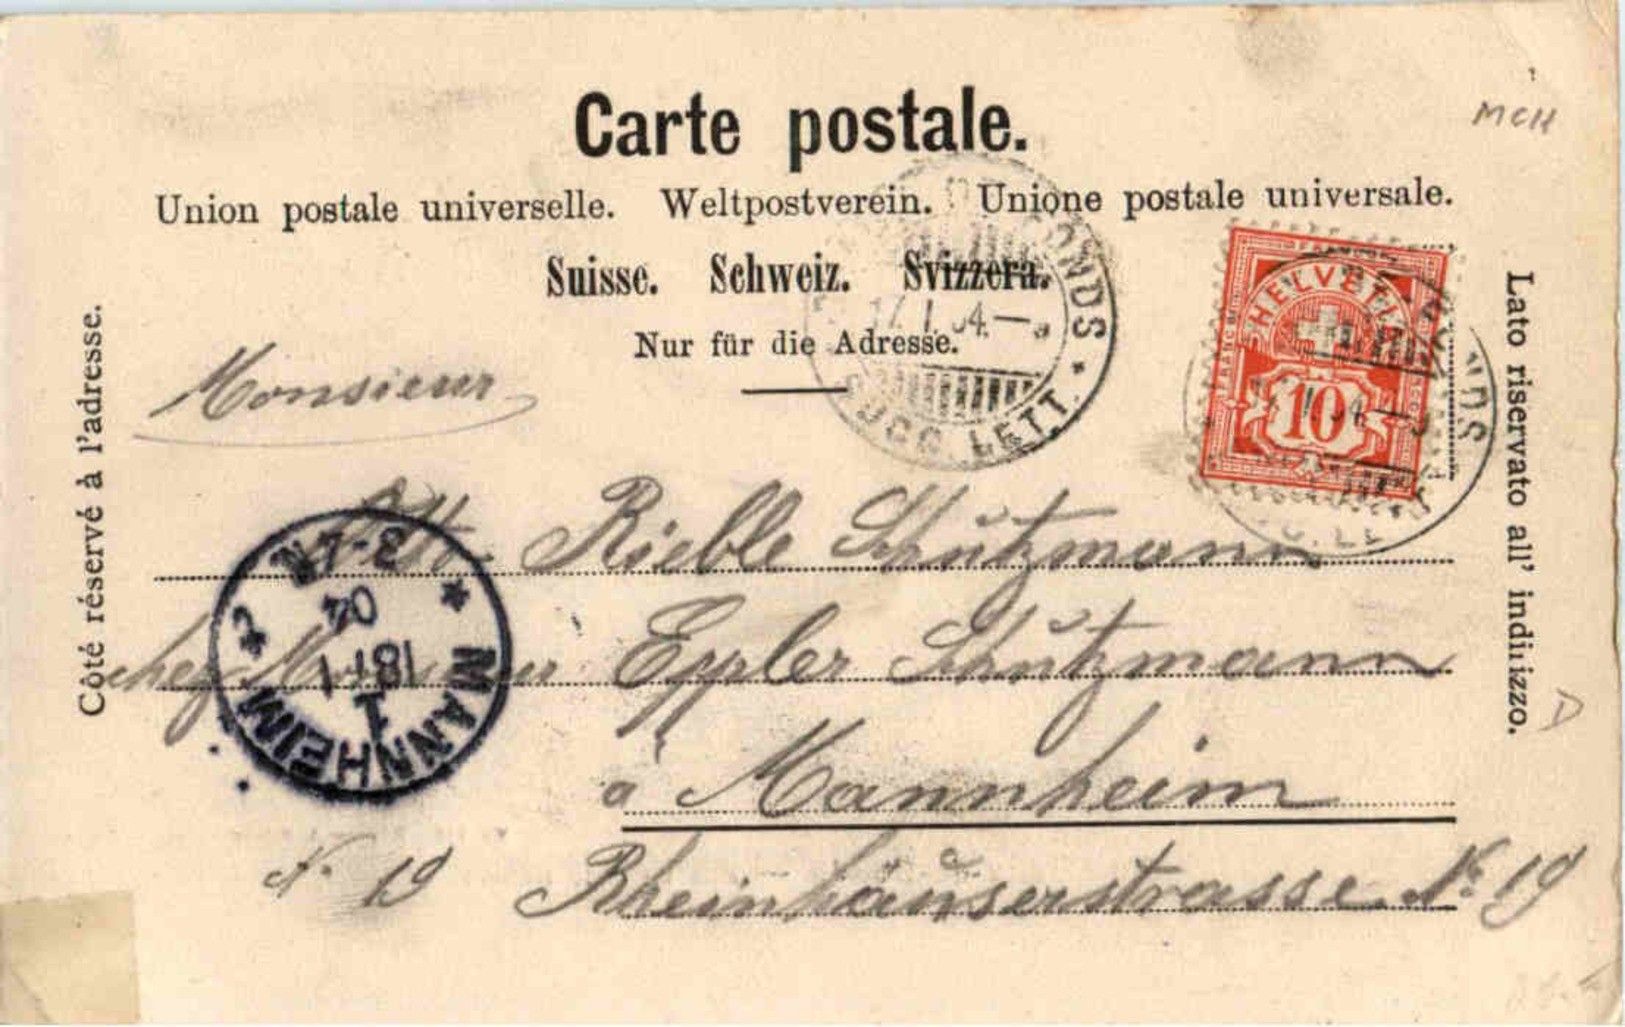 MCH
Carte postale.
Union postale universelle. Weltpostverein. Unione postale universale.
Suisse. Schweiz. Svizzera.
Nur für die Adresse.
ONDS
17. I. 04.
SUCC. LETT.
FRANCO
HELVETIA
10
NDS
Côté réservé à l'adresse.
Lato riservato all' indirizzo.
Monsieur
Rieble Schutzmann
chez Monsieur Eppler Schutzmann
à Mannheim
N. 19 Rheinhäuserstrasse. No 19
MANNHEIM
1
18 1
04
3-4N
D